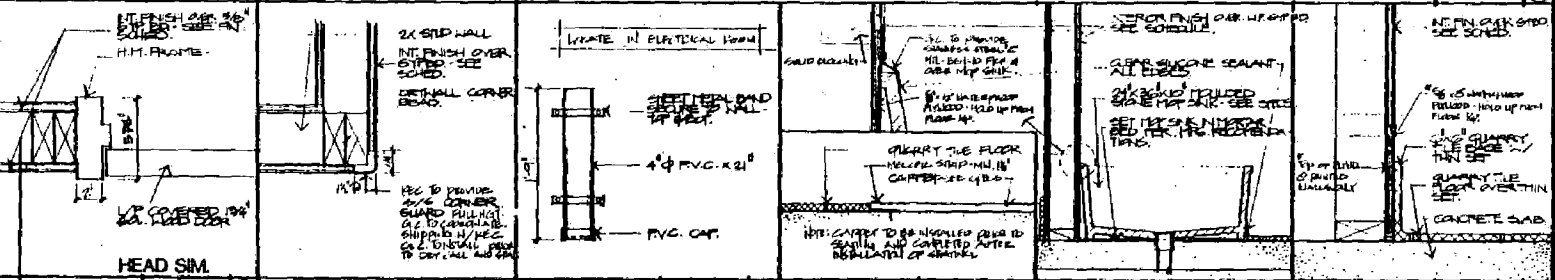 INT. FINISH OVER 5/8"
GYP. BD. - SEE FIN.
SCHED.
H.M. FRAME
5 7/8"
2"
L/P COVERED 1 3/4"
WOOD DOOR
HEAD SIM.
2X STUD WALL
INT. FINISH OVER
GYP BD - SEE
SCHED.
DRYWALL CORNER
BEAD.
KEC TO PROVIDE
S/S CORNER
GUARD FULL HGT.
G.C. TO COORDINATE
SHIPPING W/ KEC
G.C. TO INSTALL PRIOR
TO DRYWALL AND
LOCATE IN ELECTRICAL ROOM
SHEET METAL BAND
SECURE TO WALL
TOP & BOT.
4" Φ P.V.C. X 21"
P.V.C. CAP.
SOLID BLOCKING
K.C. TO PROVIDE
STAINLESS STEEL
OVER MOP SINK.
PLYWOOD - HOLD UP FROM
FLOOR 1/4".
QUARRY TILE FLOOR
CARPET
NOTE: CARPET TO BE INSTALLED PRIOR TO
SEATING AND COMPLETED AFTER
INSTALLATION OF SEATING
INTERIOR FINISH OVER W.P. GYP. BD.
SEE SCHEDULE.
CLEAR SILICONE SEALANT,
ALL EDGES
24"X36"X10" MOULDED
STONE MOP SINK - SEE SPECS
SET MOP SINK IN MORTAR
BED PER MFG. RECOMMENDA
TIONS.
INT. FIN. OVER GYP. BD.
SEE SCHED.
PLYWOOD - HOLD UP FROM
FLOOR 1/4".
QUARRY
TILE BASE W/
THIN SET
QUARRY TILE
FLOOR OVER THIN
SET.
CONCRETE SLAB